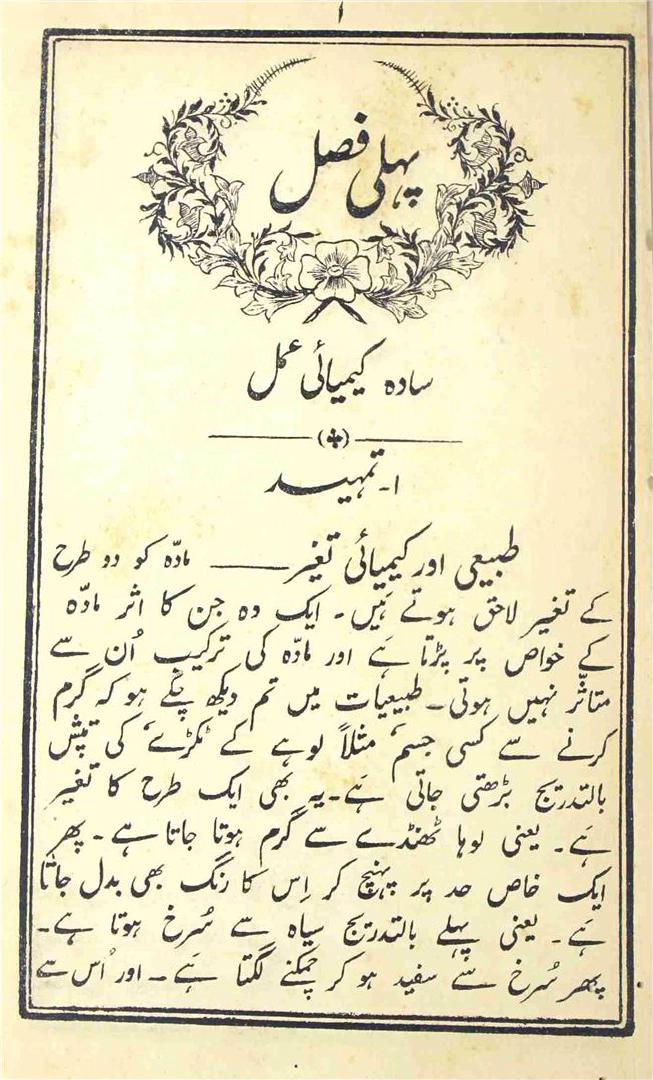 ۱
پہلی فصل
سادہ کیمیائی عمل
۱۔ تمہید
طبیعی اور کیمیائی تغیر ——— مادّہ کو دو طرح
کے تغیر لاحق ہوتے ہَیں۔ ایک وہ جن کا اثر مادّہ
کے خواص پر پڑتا ہَے اور مادّہ کی ترکیب اُن سے
متاثّر نہیں ہوتی۔ طبیعیات میں تم دیکھ چُکے ہو کہ گرم
کرنے سے کسی جسم، مثلاً لوہے کے ٹکڑے، کی تپش
بالتدریج بڑھتی جاتی ہَے۔ یہ بھی ایک طرح کا تغیر
ہَے۔ یعنی لوہا ٹھنڈے سے گرم ہوتا جاتا ہے۔ پھر
ایک خاص حد پر پہنچ کر اِس کا رنگ بھی بدل جاتا
ہَے۔ یعنی پہلے بالتدریج سیاہ سے سُرخ ہوتا ہے۔
پھر سُرخ سے سفید ہو کر چمکنے لگتا ہَے۔ اور اُس سے